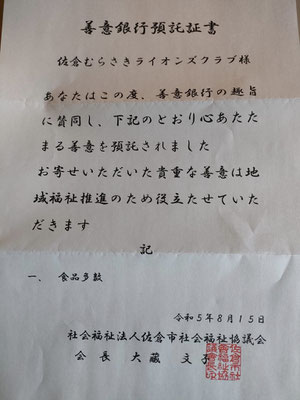 善意銀行預託証書
佐倉むらさきライオンズクラブ様
あなたはこの度、善意銀行の趣旨
に賛同し、下記のとおり心あたた
まる善意を預託されました
お寄せいただいた貴重な善意は地
域福祉推進のため役立たせていた
だきます
記
一、 食品多数
令和5年8月15日
社会福祉法人佐倉市社会福祉協議会
会長 大藏 文子